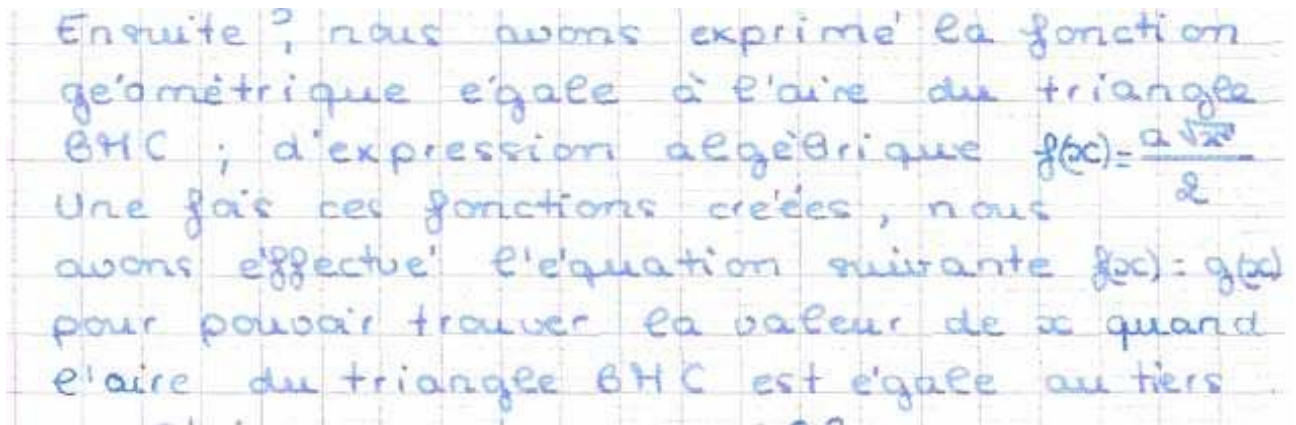 Ensuite, nous avons exprimé la fonction
géométrique égale à l'aire du triangle
BMC ; d'expression algébrique f(x) = a√x / 2
Une fois ces fonctions créées, nous
avons éffectué l'équation suivante f(x) = g(x)
pour pouvoir trouver la valeur de x quand
l'aire du triangle BMC est égale au tiers